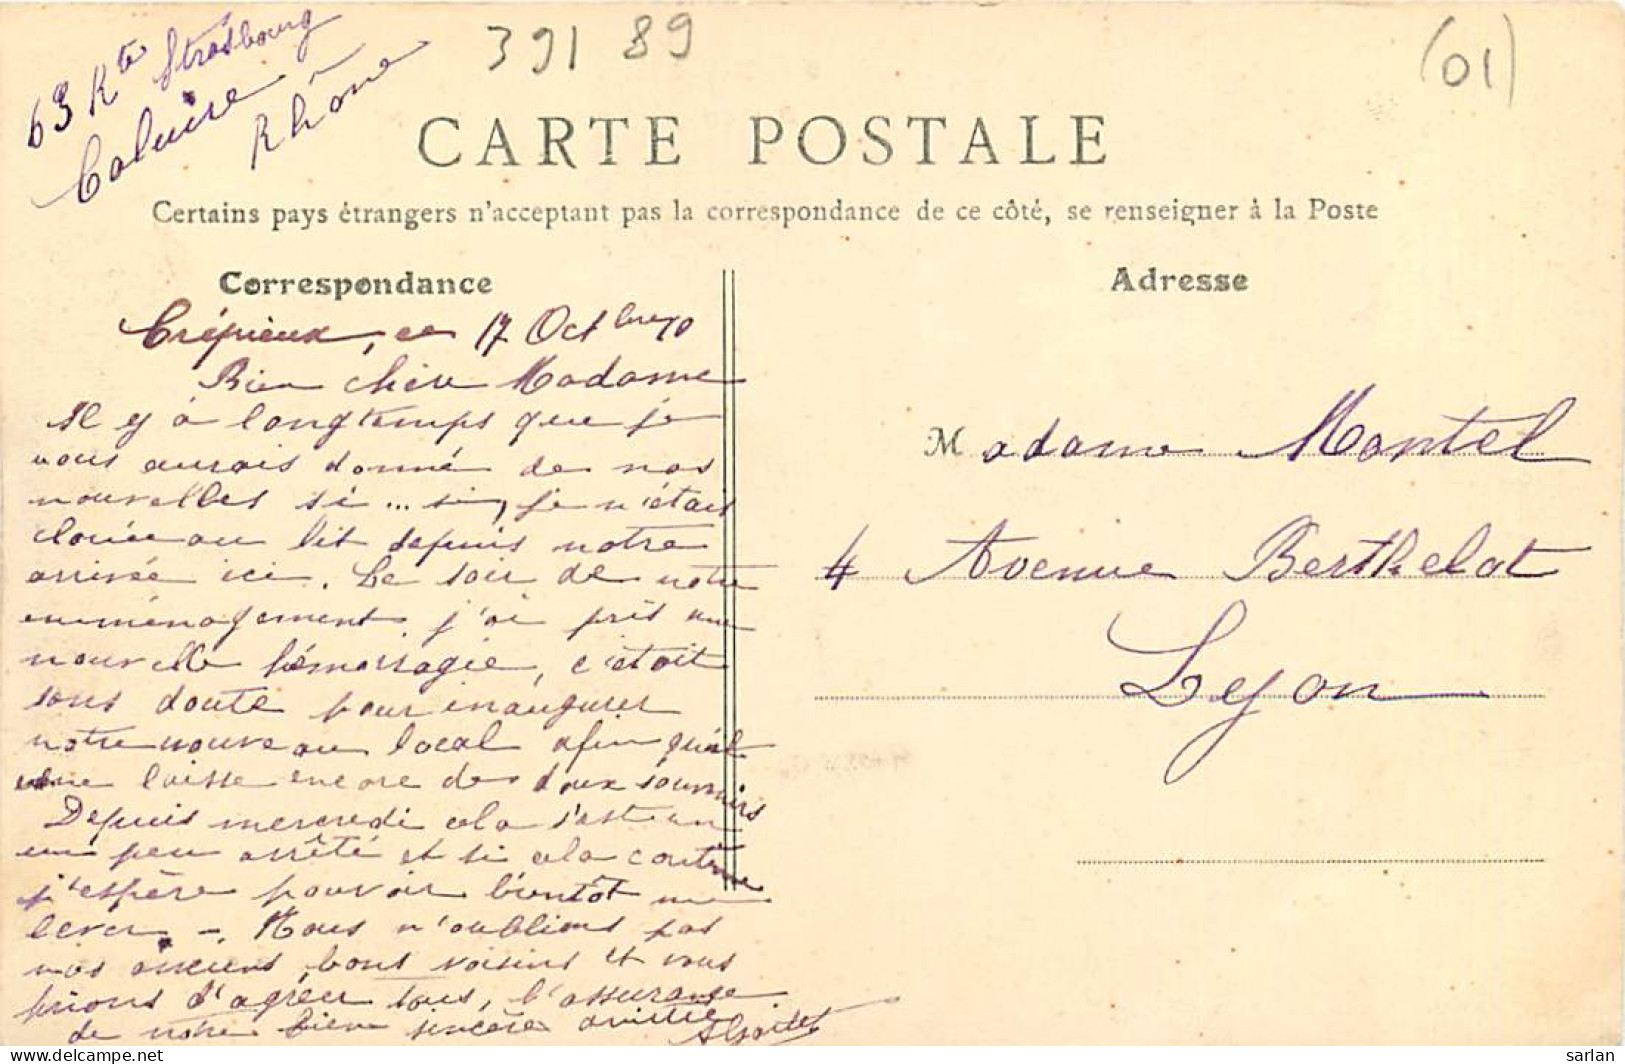 391 89
(01)
63 Rte Strasbourg
Caluire
Rhône
CARTE POSTALE
Certains pays étrangers n'acceptant pas la correspondance de ce côté, se renseigner à la Poste
Correspondance
Adresse
Crépieux, ce 17 Octbre 10
Bien chère Madame
Il y a longtemps que je
vous aurais donné de nos
nouvelles si... si, je n'étais
clouée au lit depuis notre
arrivée ici. Le soir de notre
emménagement j'ai pris une
nouvelle hémorragie, c'était
sans doute pour inaugurer
notre nouveau local afin qu'il
me laisse encore de doux souvenirs
Depuis mercredi cela s'est un
un peu arrêté et si cela continue
j'espère pouvoir bientôt me
lever -. Nous n'oublions pas
nos anciens bons voisins et vous
prions d'agréer tous, l'assurance
de notre bien sincère amitié
Madame Montel
4 Avenue Berthelot
Lyon
delcampe.net
sarlan